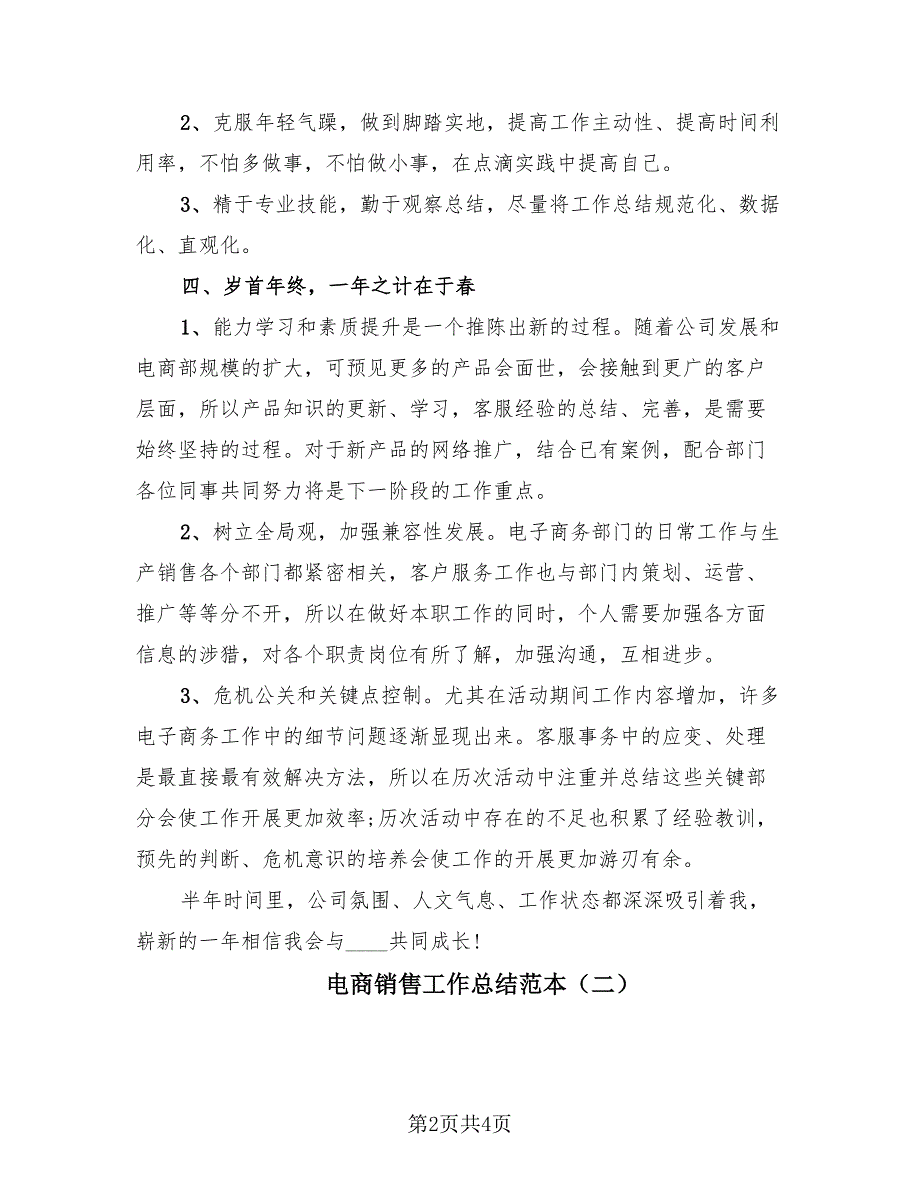 2、克服年轻气躁，做到脚踏实地，提高工作主动性、提高时间利
用率，不怕多做事，不怕做小事，在点滴实践中提高自己。
3、精于专业技能，勤于观察总结，尽量将工作总结规范化、数据
化、直观化。
四、岁首年终，一年之计在于春
1、能力学习和素质提升是一个推陈出新的过程。随着公司发展和
电商部规模的扩大，可预见更多的产品会面世，会接触到更广的客户
层面，所以产品知识的更新、学习，客服经验的总结、完善，是需要
始终坚持的过程。对于新产品的网络推广，结合已有案例，配合部门
各位同事共同努力将是下一阶段的工作重点。
2、树立全局观，加强兼容性发展。电子商务部门的日常工作与生
产销售各个部门都紧密相关，客户服务工作也与部门内策划、运营、
推广等等分不开，所以在做好本职工作的同时，个人需要加强各方面
信息的涉猎，对各个职责岗位有所了解，加强沟通，互相进步。
3、危机公关和关键点控制。尤其在活动期间工作内容增加，许多
电子商务工作中的细节问题逐渐显现出来。客服事务中的应变、处理
是最直接最有效解决方法，所以在历次活动中注重并总结这些关键部
分会使工作开展更加效率;历次活动中存在的不足也积累了经验教训，
预先的判断、危机意识的培养会使工作的开展更加游刃有余。
半年时间里，公司氛围、人文气息、工作状态都深深吸引着我，
崭新的一年相信我会与____共同成长!
电商销售工作总结范本（二）
第2页共4页